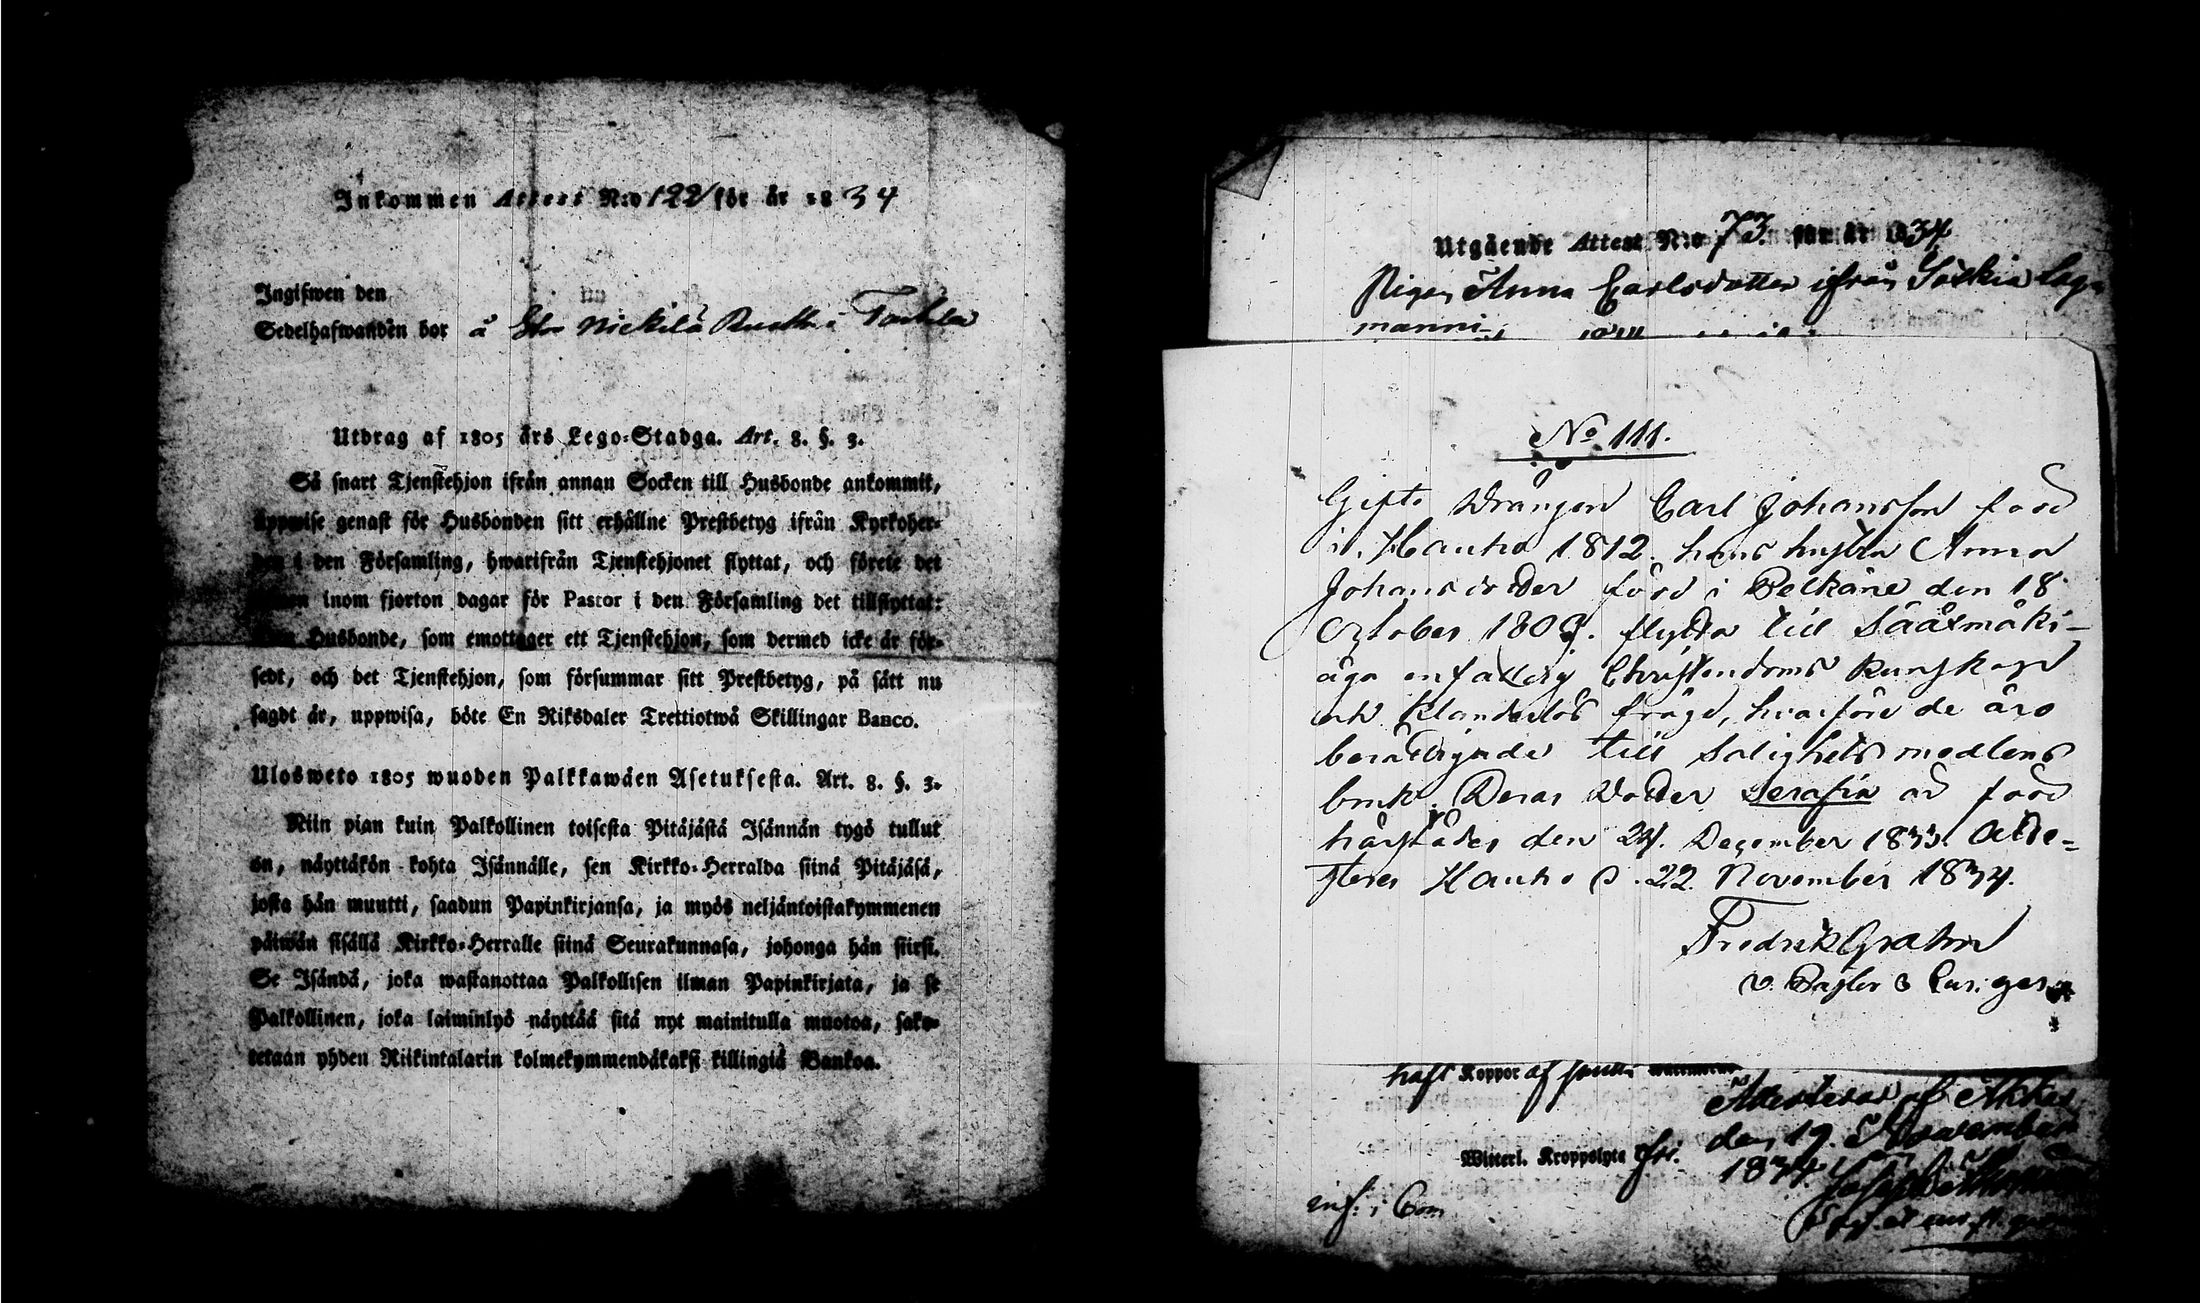 Inkommen Attest N:o 122 för år 1834
Ingifwen den
Sedelhafwanden bor å Stor Nickilä Rusth. i Tarttila
Utdrag af 1805 års Lego-Stadga. Art. 8. §. 3.
Så snart Tjenstehjon ifrån annan Socken till Husbonde ankommit,
uppwise genast för Husbonden sitt erhållne Prestbetyg ifrån Kyrkoher-
den i den Församling, hwarifrån Tjenstehjonet flyttat, och förete det
inom fjorton dagar för Pastor i den Församling det tillflyttat:
Husbonde, som emottager ett Tjenstehjon, som dermed icke är för-
sedt, och det Tjenstehjon, som försummar sitt Prestbetyg, på sätt nu
sagdt är, uppwisa, böte En Riksdaler Trettiotwå Skillingar Banco.
Ulosweto 1805 wuoden Palkkawäen Asetuksesta. Art. 8. §. 3.
Niin pian kuin Palkollinen toisesta Pitäjästä Isännän tygö tullut
on, näyttäkön kohta Isännälle, sen Kirkko-Herralda siinä Pitäjäsä,
josta hän muutti, saadun Papinkirjansa, ja myös neljäntoistakymmenen
päiwän sisällä Kirkko-Herralle siinä Seurakunnasa, johonga hän siirsi.
Se Isändä, joka wastanottaa Palkollisen ilman Papinkirjata, ja se
Palkollinen, joka laiminlyö näyttää sitä nyt mainitulla muotoa, sako-
tetaan yhden Riikintalarin kolmekymmendäkaksi killingiä Bankoa.
Utgående Attest N:o 73. för år 1834
Pigan Anna Carlsdotter ifrån Sotkia
No 111.
Gifte Drängen Carl Johansson född
i Hauho 1812. hans hustru Anna
Johansdotter född i Pelkäne den 18
October 1809. flytta till Sääxmäki
äga enfaldig Christendoms kunskap
och klanderlös frägd, hvarföre de äro
berättigade till Salighets medlens
bruk. Deras Dotter Serafia är född
härstädes den 24. December 1833. Atte-
steras Hauho d. 22. November 1834.
Fredrik Grahn
v. Pastor
haft Koppor af
Attesteras af Akkas
den 19. November
Witterl. Kroppslyte fri.
1834
inf: i Com